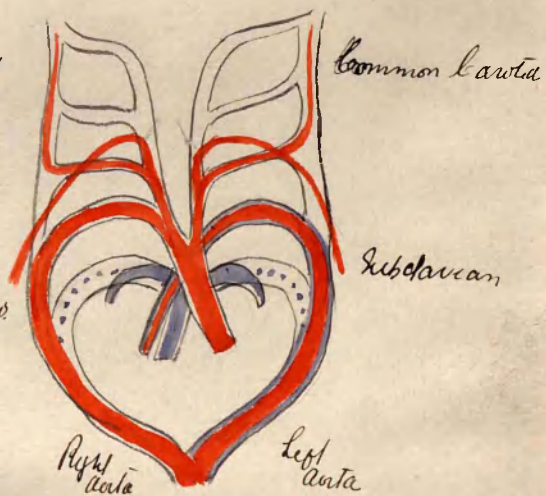 Common Carotid
Subclavian
Right
aorta
Left
aorta